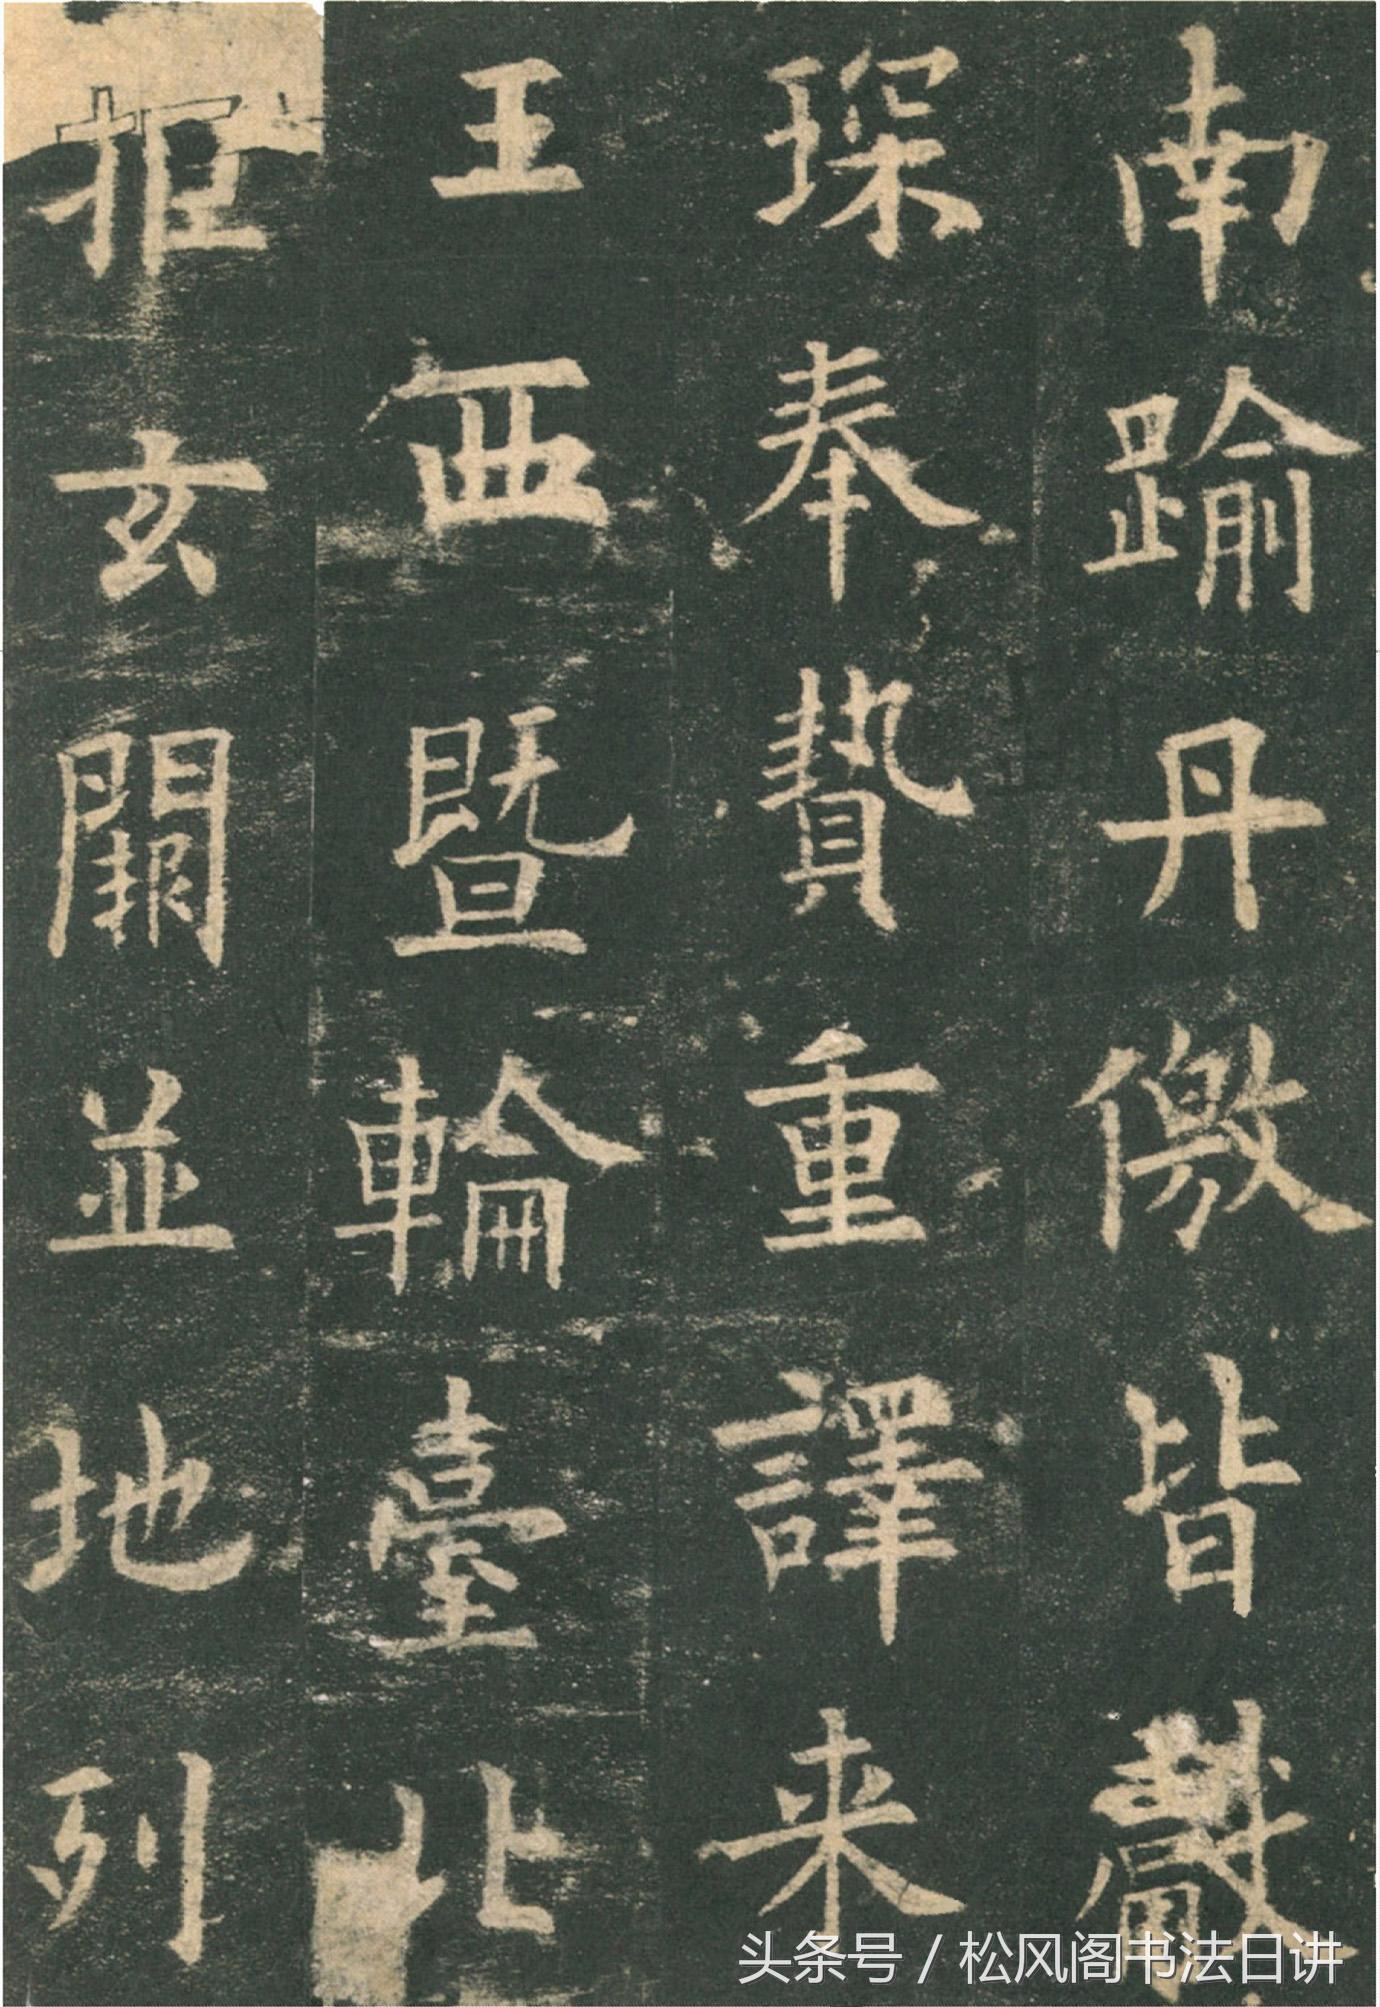 南踰丹儌皆獻
琛奉贄重譯来
王西暨輪臺北
拒玄闕並地列
头条号 / 松风阁书法日讲